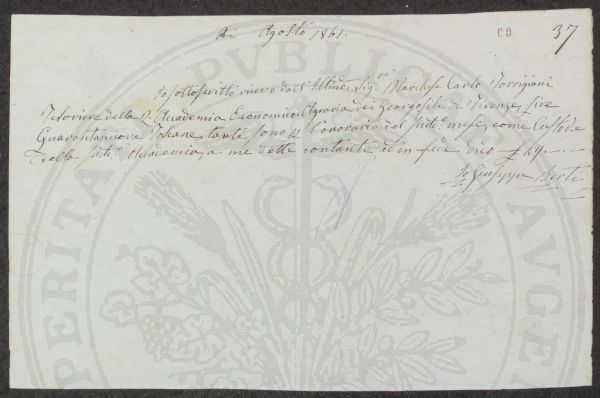 Adi Agosto 1861.
60 37
Io sottoscritto ricevo dall' Illmo: Sigre: Marchese Carlo Torrigiani
Tesoriere della R. Accademia Economico Agraria dei Georgofili di Firenze, Lire
Quarantanove Toscane, tante sono pr. l'onorario del sudto: mese, come Custode
della sudta: Accademia, a me dette contanti, ed in fede dico £ 49. - - -
Io Giuseppe Berti
PROSPERITATI PUBLICAE AUGENDAE